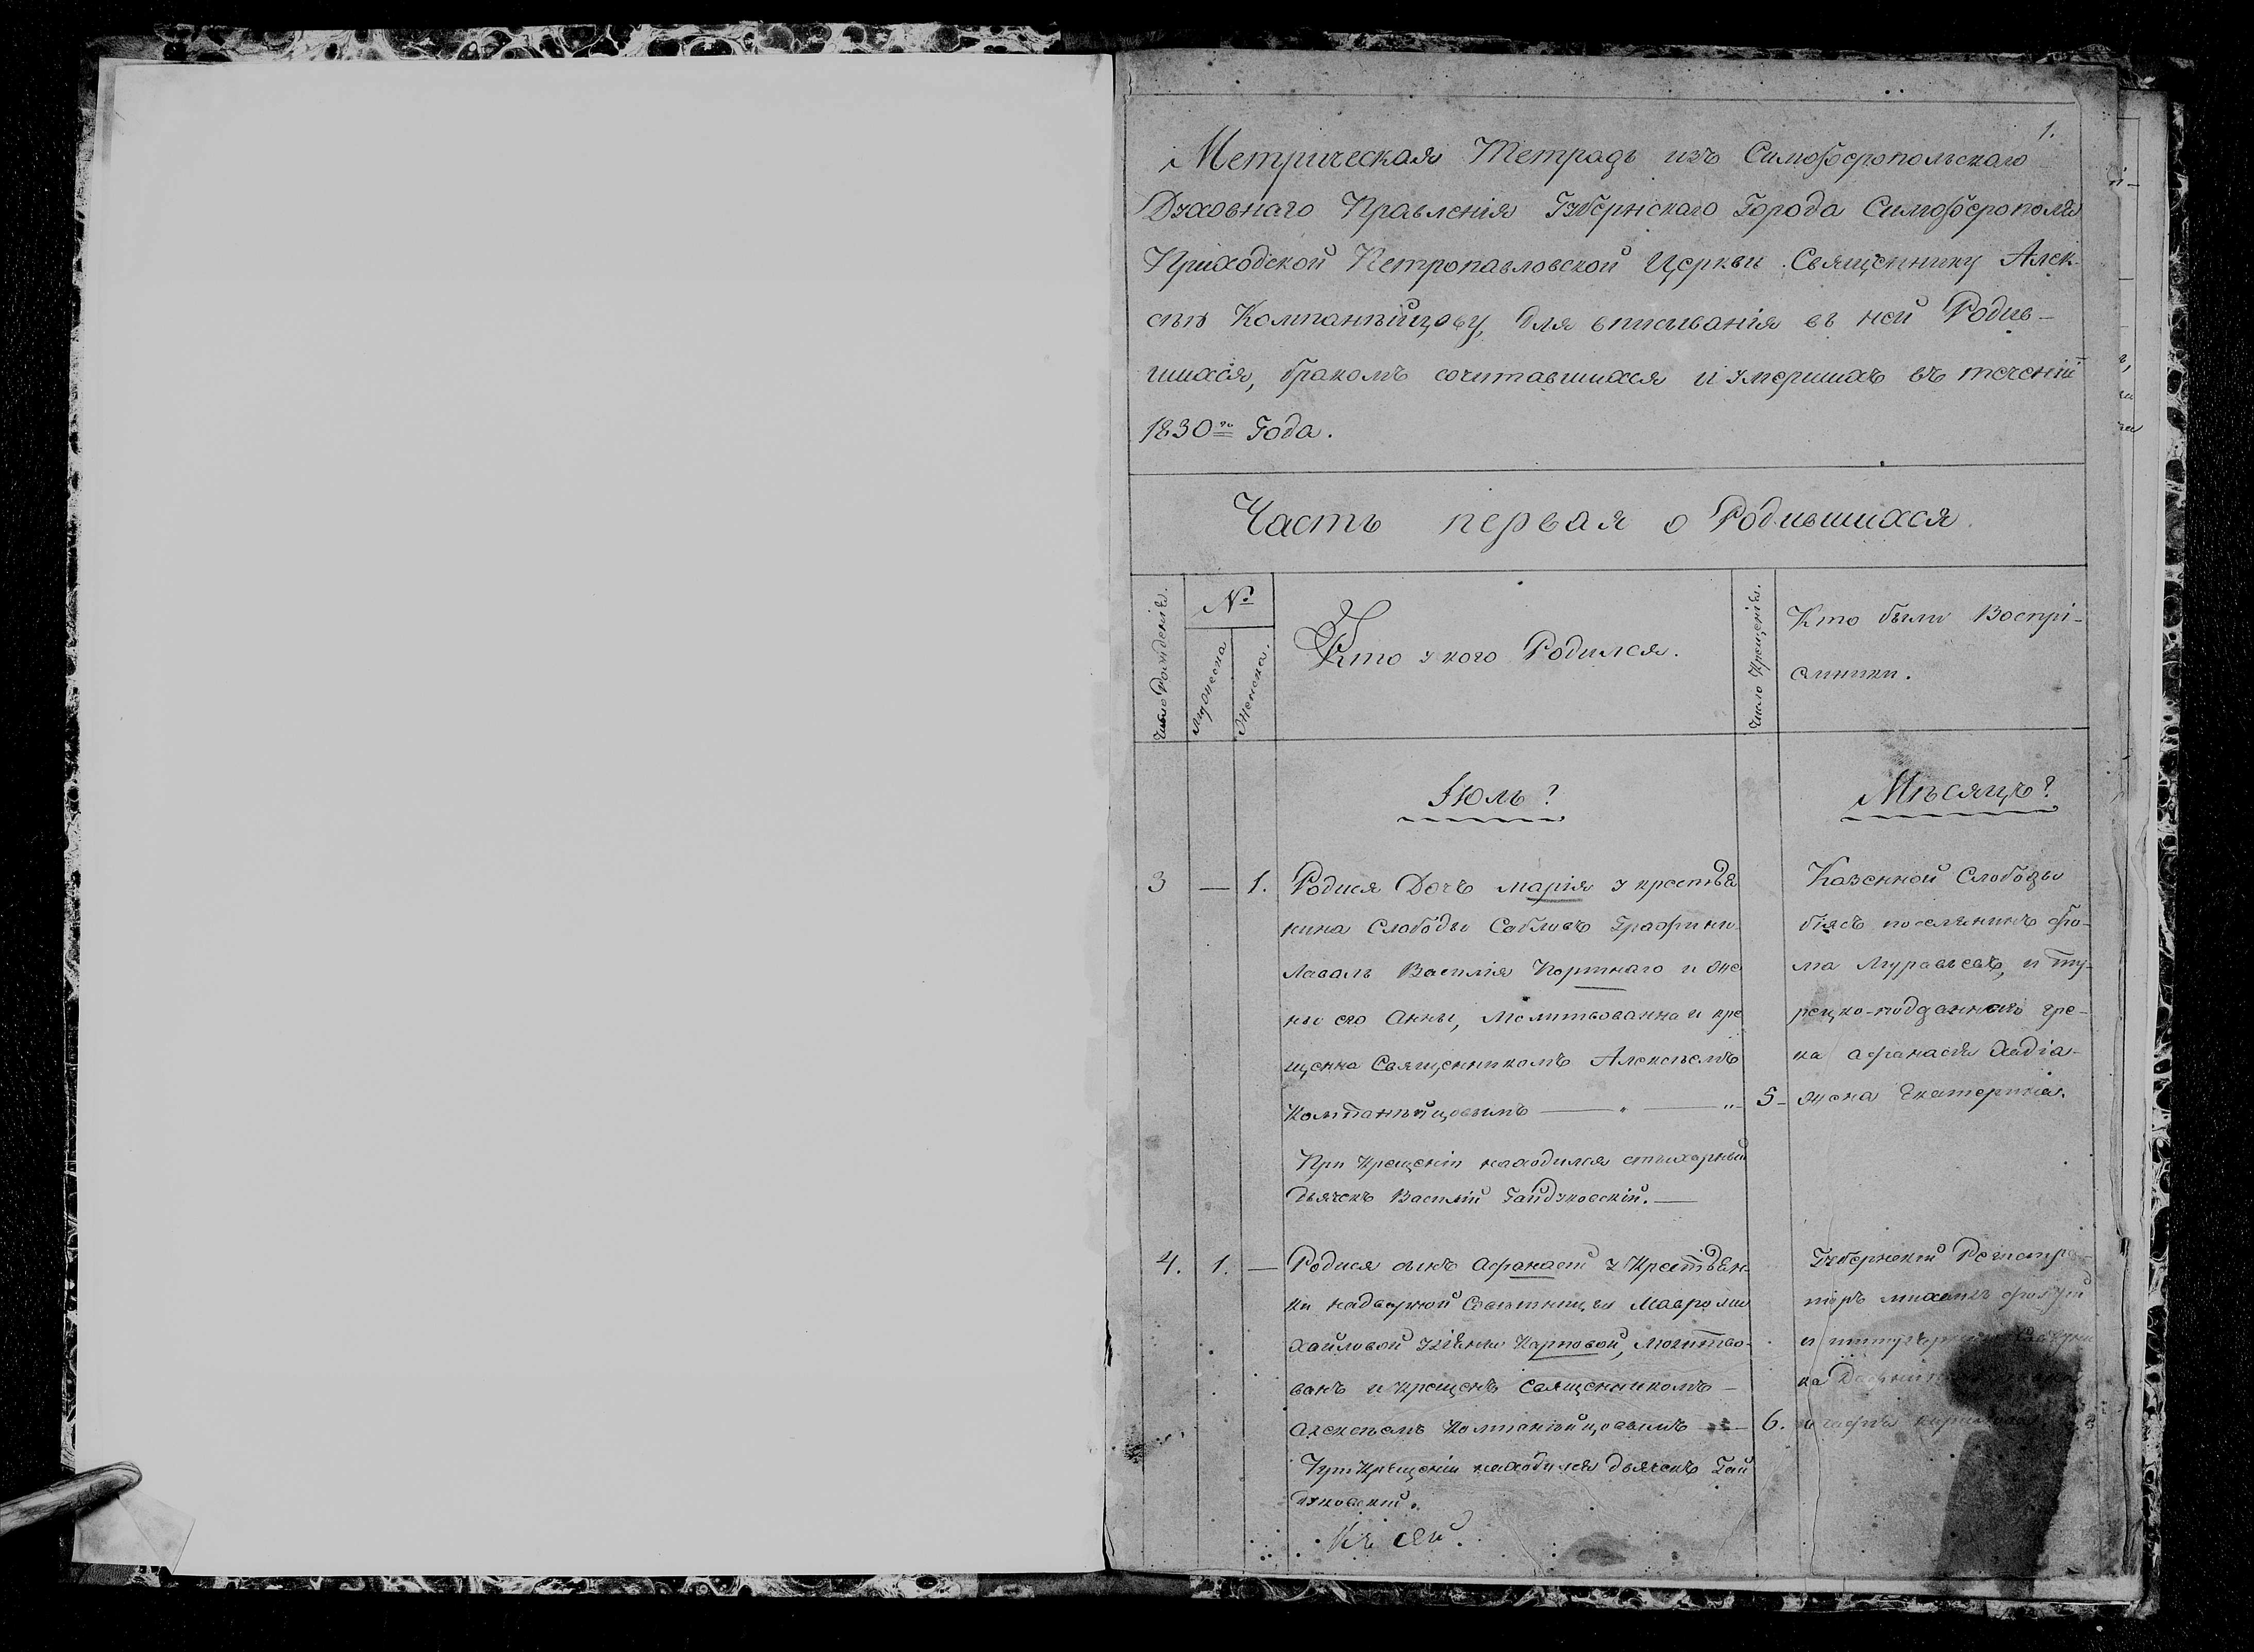 1.
Метрическая Тетрадь изъ Симоѳеропольскаго
Духовнаго Правленія Губернскаго Города Симоѳерополя
Приходской Петропавловской Церкви Священнику Алек-
сѣю Компанѣйцову, для вписыванія въ ней Родив-
шихся, бракомъ сочитавшихся и умершихъ въ теченіи
1830го Года.
Часть первая о Родившихся.
Число Рожденія.
№
Мужеска
Женска.
Кто у кого Родился.
Число Крещенія.
Кто были Воспрі-
емники.
Іюль?
Мѣсяцъ?
3 — 1. Родися Дочь Марія у крестья
нина Слободы Сабловъ Графини
Лаваль Василія Портнаго и же
ны его Анны, Молитвованна и кре
щенна Священникомъ Алексѣемъ
Компанѣйцовымъ — „ — „
При Крещеніи находился стихарный
Дьячекъ Василій Гайдуковскій. —
Казенной Слободы
біясъ поселянинъ Фо-
ма Муравьевъ, и ту-
рецко-подданнаго гре-
ка Афанасія Хадіа-
5 - жена Екатерина.
4. 1. — Родися сынъ Афанасій у Крестьян-
ки надворной Совѣтницы Мавры Ми
хайловой Карповой, Молитво-
ванъ и крещенъ Священникомъ —
Алексѣемъ Компанѣйцовымъ —
При Крещеніи находился дьячекъ Гай
дуковскій.
Губернскій Регистра-
торъ Михаилъ
и
ка
6.